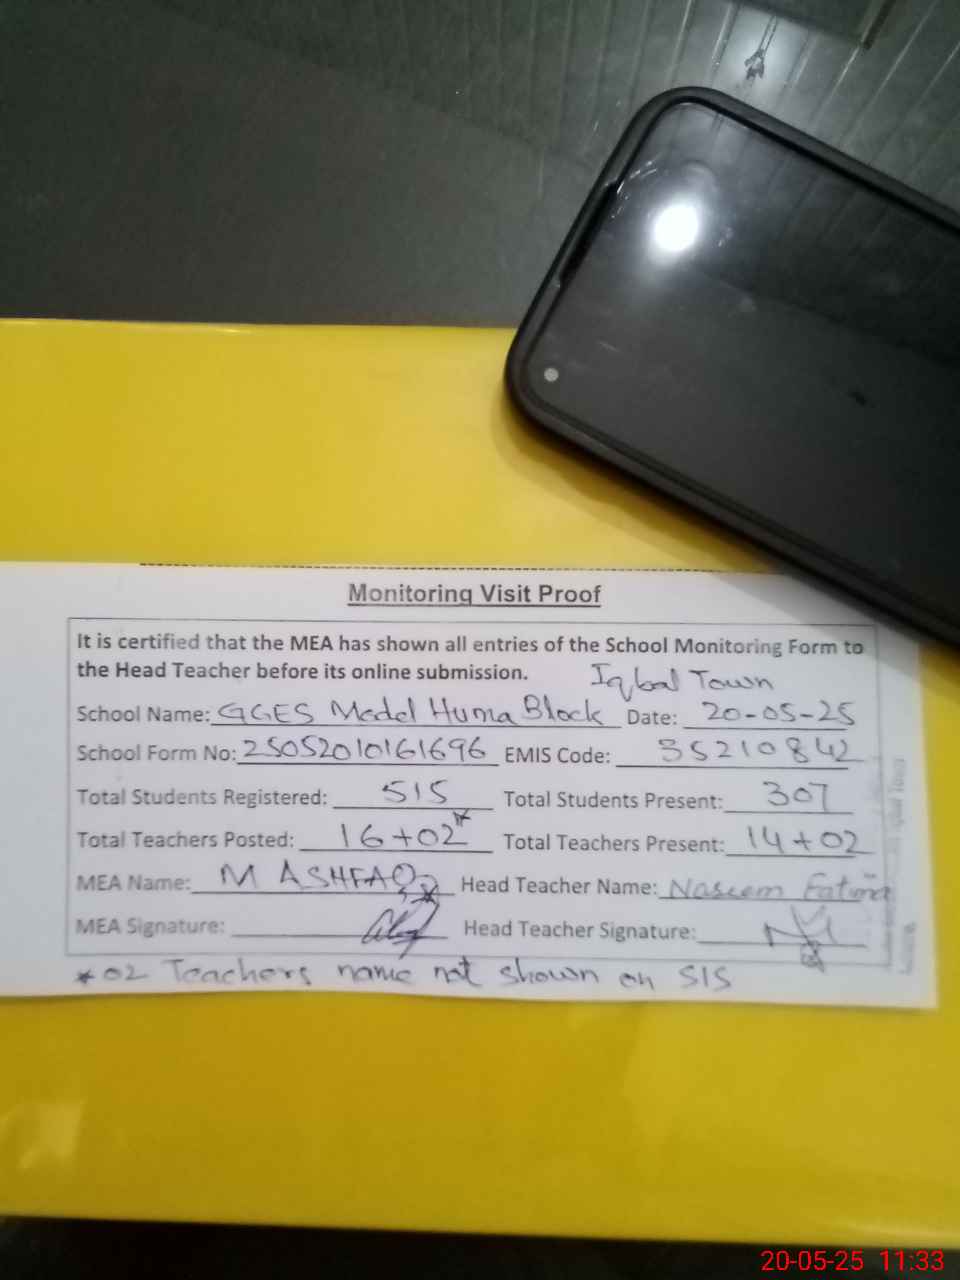 Monitoring Visit Proof
It is certified that the MEA has shown all entries of the School Monitoring Form to
the Head Teacher before its online submission.
Iqbal Town
School Name: GGES Model Huma Block Date: 20-05-25
School Form No: 2505201061696 EMIS Code: 35210842
Total Students Registered: 515 Total Students Present: 307
Total Teachers Posted: 16+02* Total Teachers Present: 14+02
MEA Name: M ASHFAQ Head Teacher Name: Naseem Fatima
MEA Signature: Head Teacher Signature:
* 02 Teachers name not shown on SIS
20-05-25 11:33